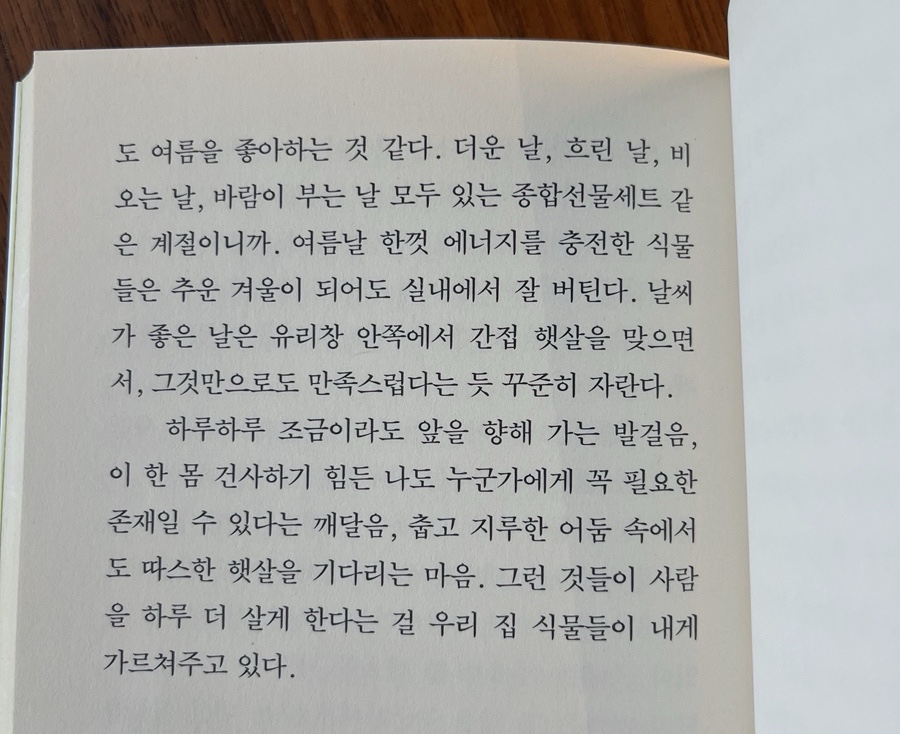 도 여름을 좋아하는 것 같다. 더운 날, 흐린 날, 비
오는 날, 바람이 부는 날 모두 있는 종합선물세트 같
은 계절이니까. 여름날 한껏 에너지를 충전한 식물
들은 추운 겨울이 되어도 실내에서 잘 버틴다. 날씨
가 좋은 날은 유리창 안쪽에서 간접 햇살을 맞으면
서, 그것만으로도 만족스럽다는 듯 꾸준히 자란다.
하루하루 조금이라도 앞을 향해 가는 발걸음,
이 한 몸 건사하기 힘든 나도 누군가에게 꼭 필요한
존재일 수 있다는 깨달음, 춥고 지루한 어둠 속에서
도 따스한 햇살을 기다리는 마음. 그런 것들이 사람
을 하루 더 살게 한다는 걸 우리 집 식물들이 내게
가르쳐주고 있다.